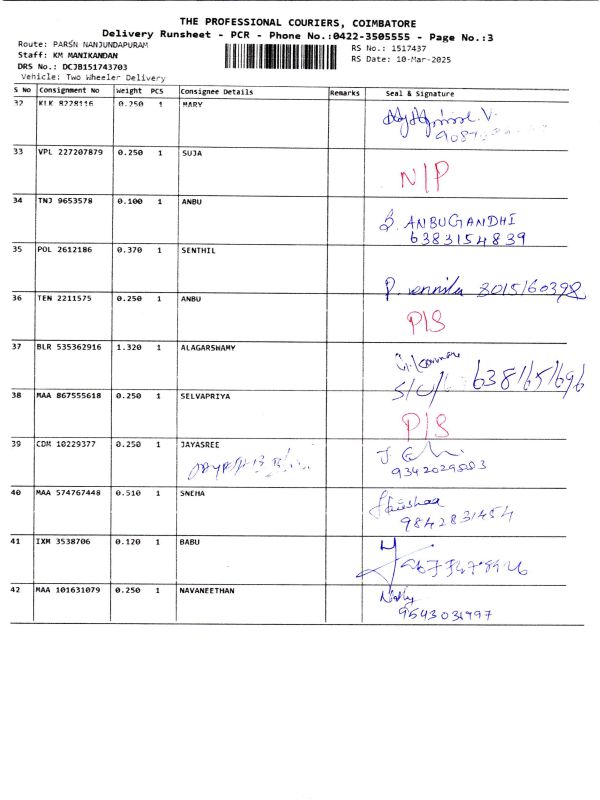 THE PROFESSIONAL COURIERS, COIMBATORE
Delivery Runsheet - PCR - Phone No.:0422-3505555 - Page No.:3
Route: PARSN NANJUNDAPURAM
RS No.: 1517437
Staff: KM MANIKANDAN
RS Date: 10-Mar-2025
DRS No.: DCJB151743703
Vehicle: Two Wheeler Delivery
S No Consignment No Weight PCS Consignee Details Remarks Seal & Signature
32 KLK 8228116 0.250 1 MARY
33 VPL 227207879 0.250 1 SUJA
N/P
34 TNJ 9653578 0.100 1 ANBU
ANBUGANDHI
6383154839
35 POL 2612186 0.370 1 SENTHIL
P. vennila
36 TEN 2211575 0.250 1 ANBU
P/S
37 BLR 535362916 1.320 1 ALAGARSWAMY
S/O/ 6381651696
38 MAA 867555618 0.250 1 SELVAPRIYA
P/S
39 CDM 10229377 0.250 1 JAYASREE
40 MAA 574767448 0.510 1 SNEHA
9842831454
41 IXM 3538706 0.120 1 BABU
42 MAA 101631079 0.250 1 NAVANEETHAN